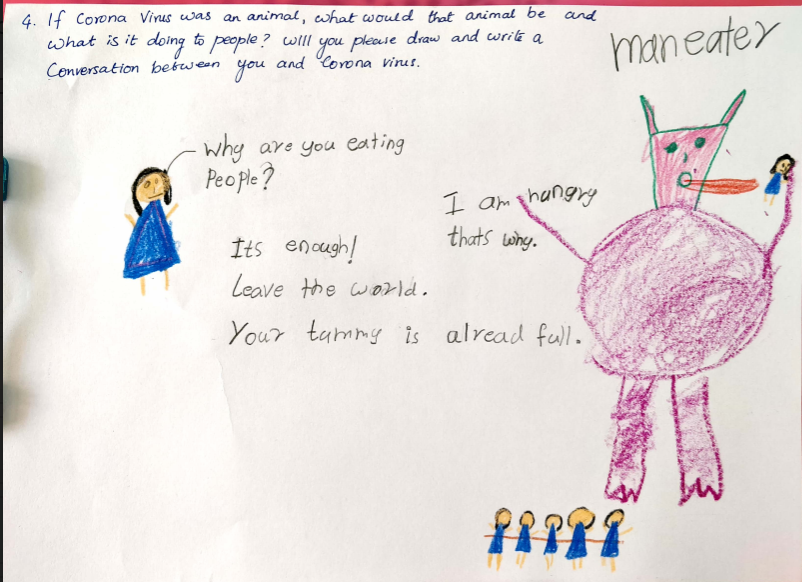 4. If Corona Virus was an animal, what would that animal be and
what is it doing to people? will you please draw and write a
Conversation between you and Corona virus.
maneater
Why are you eating
People?
I am hungry
thats why.
Its enough!
Leave the world.
Your tummy is alread full.